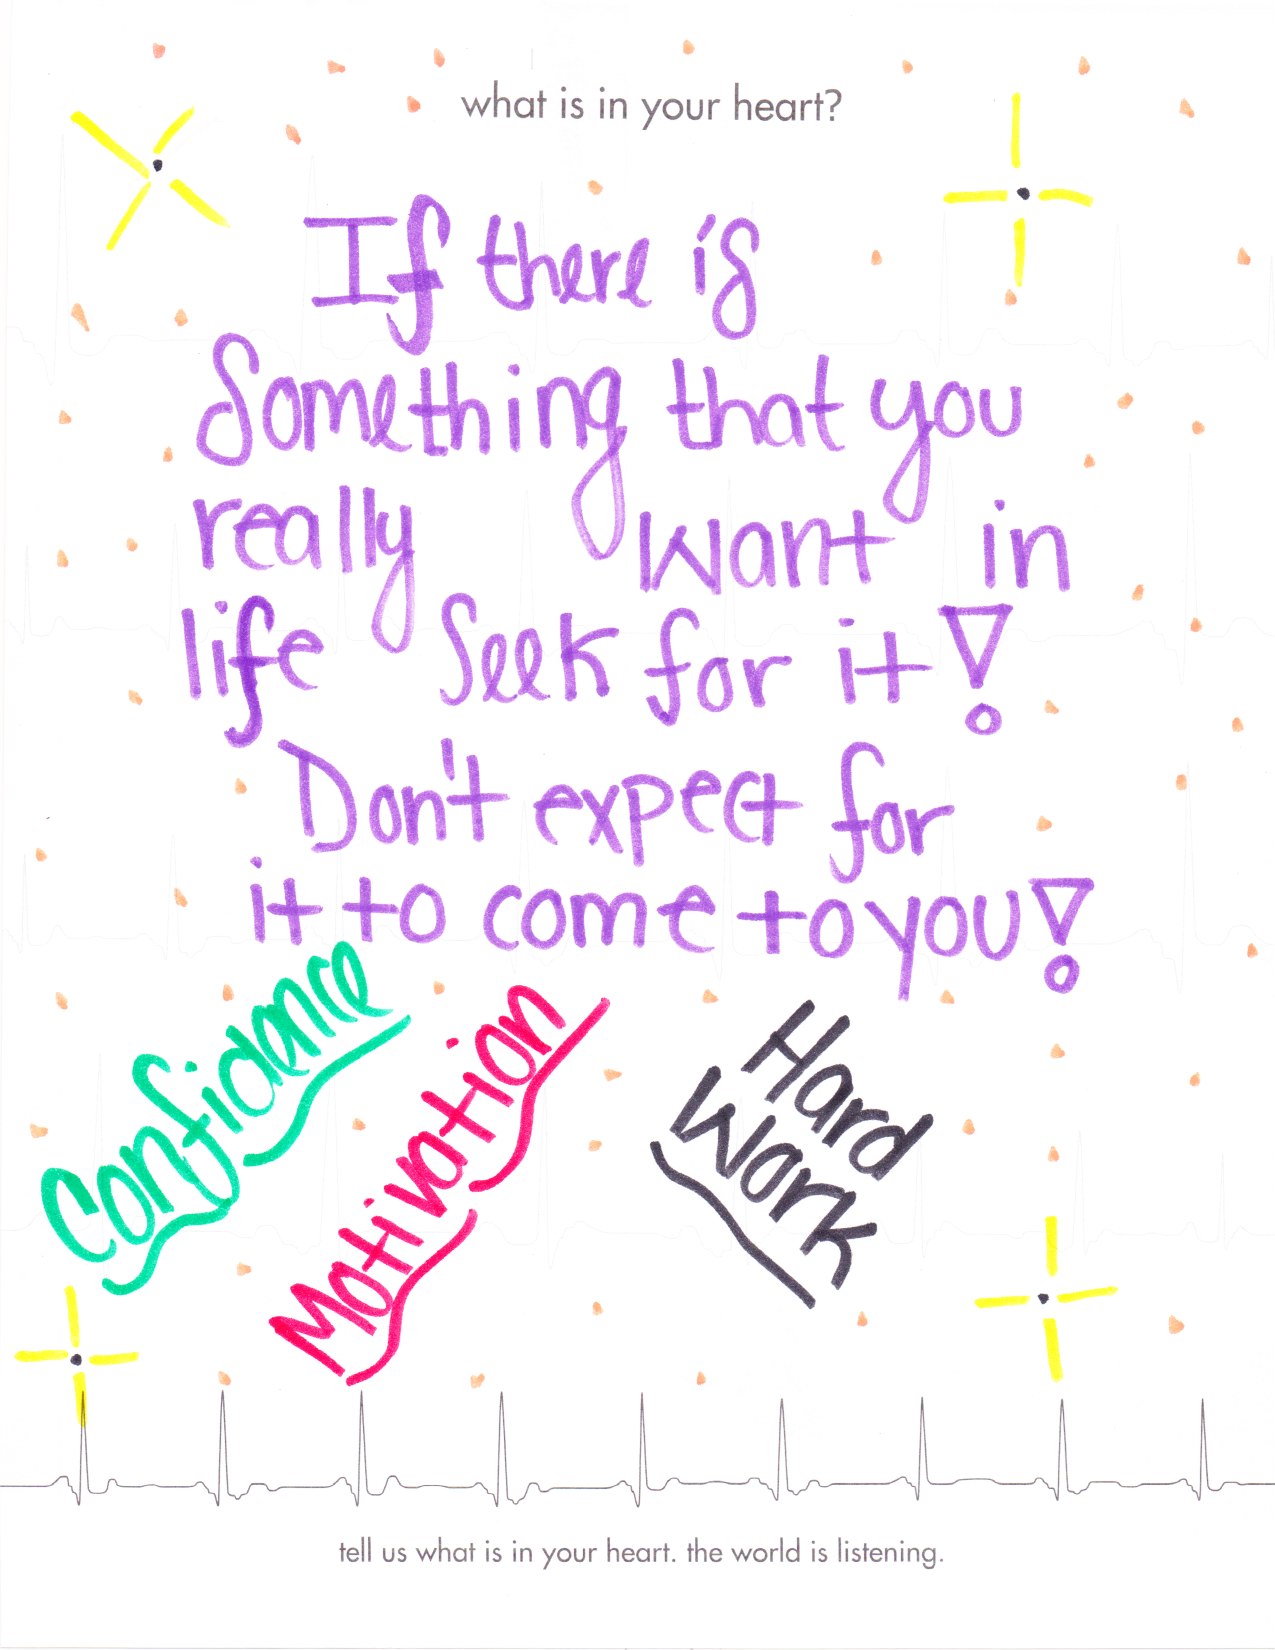 what is in your heart?
If there is
Something that you
really want in
life Seek for it!
Don't expect for
it to come to you!
Confidance
Motivation
Hard
Work
tell us what is in your heart. the world is listening.